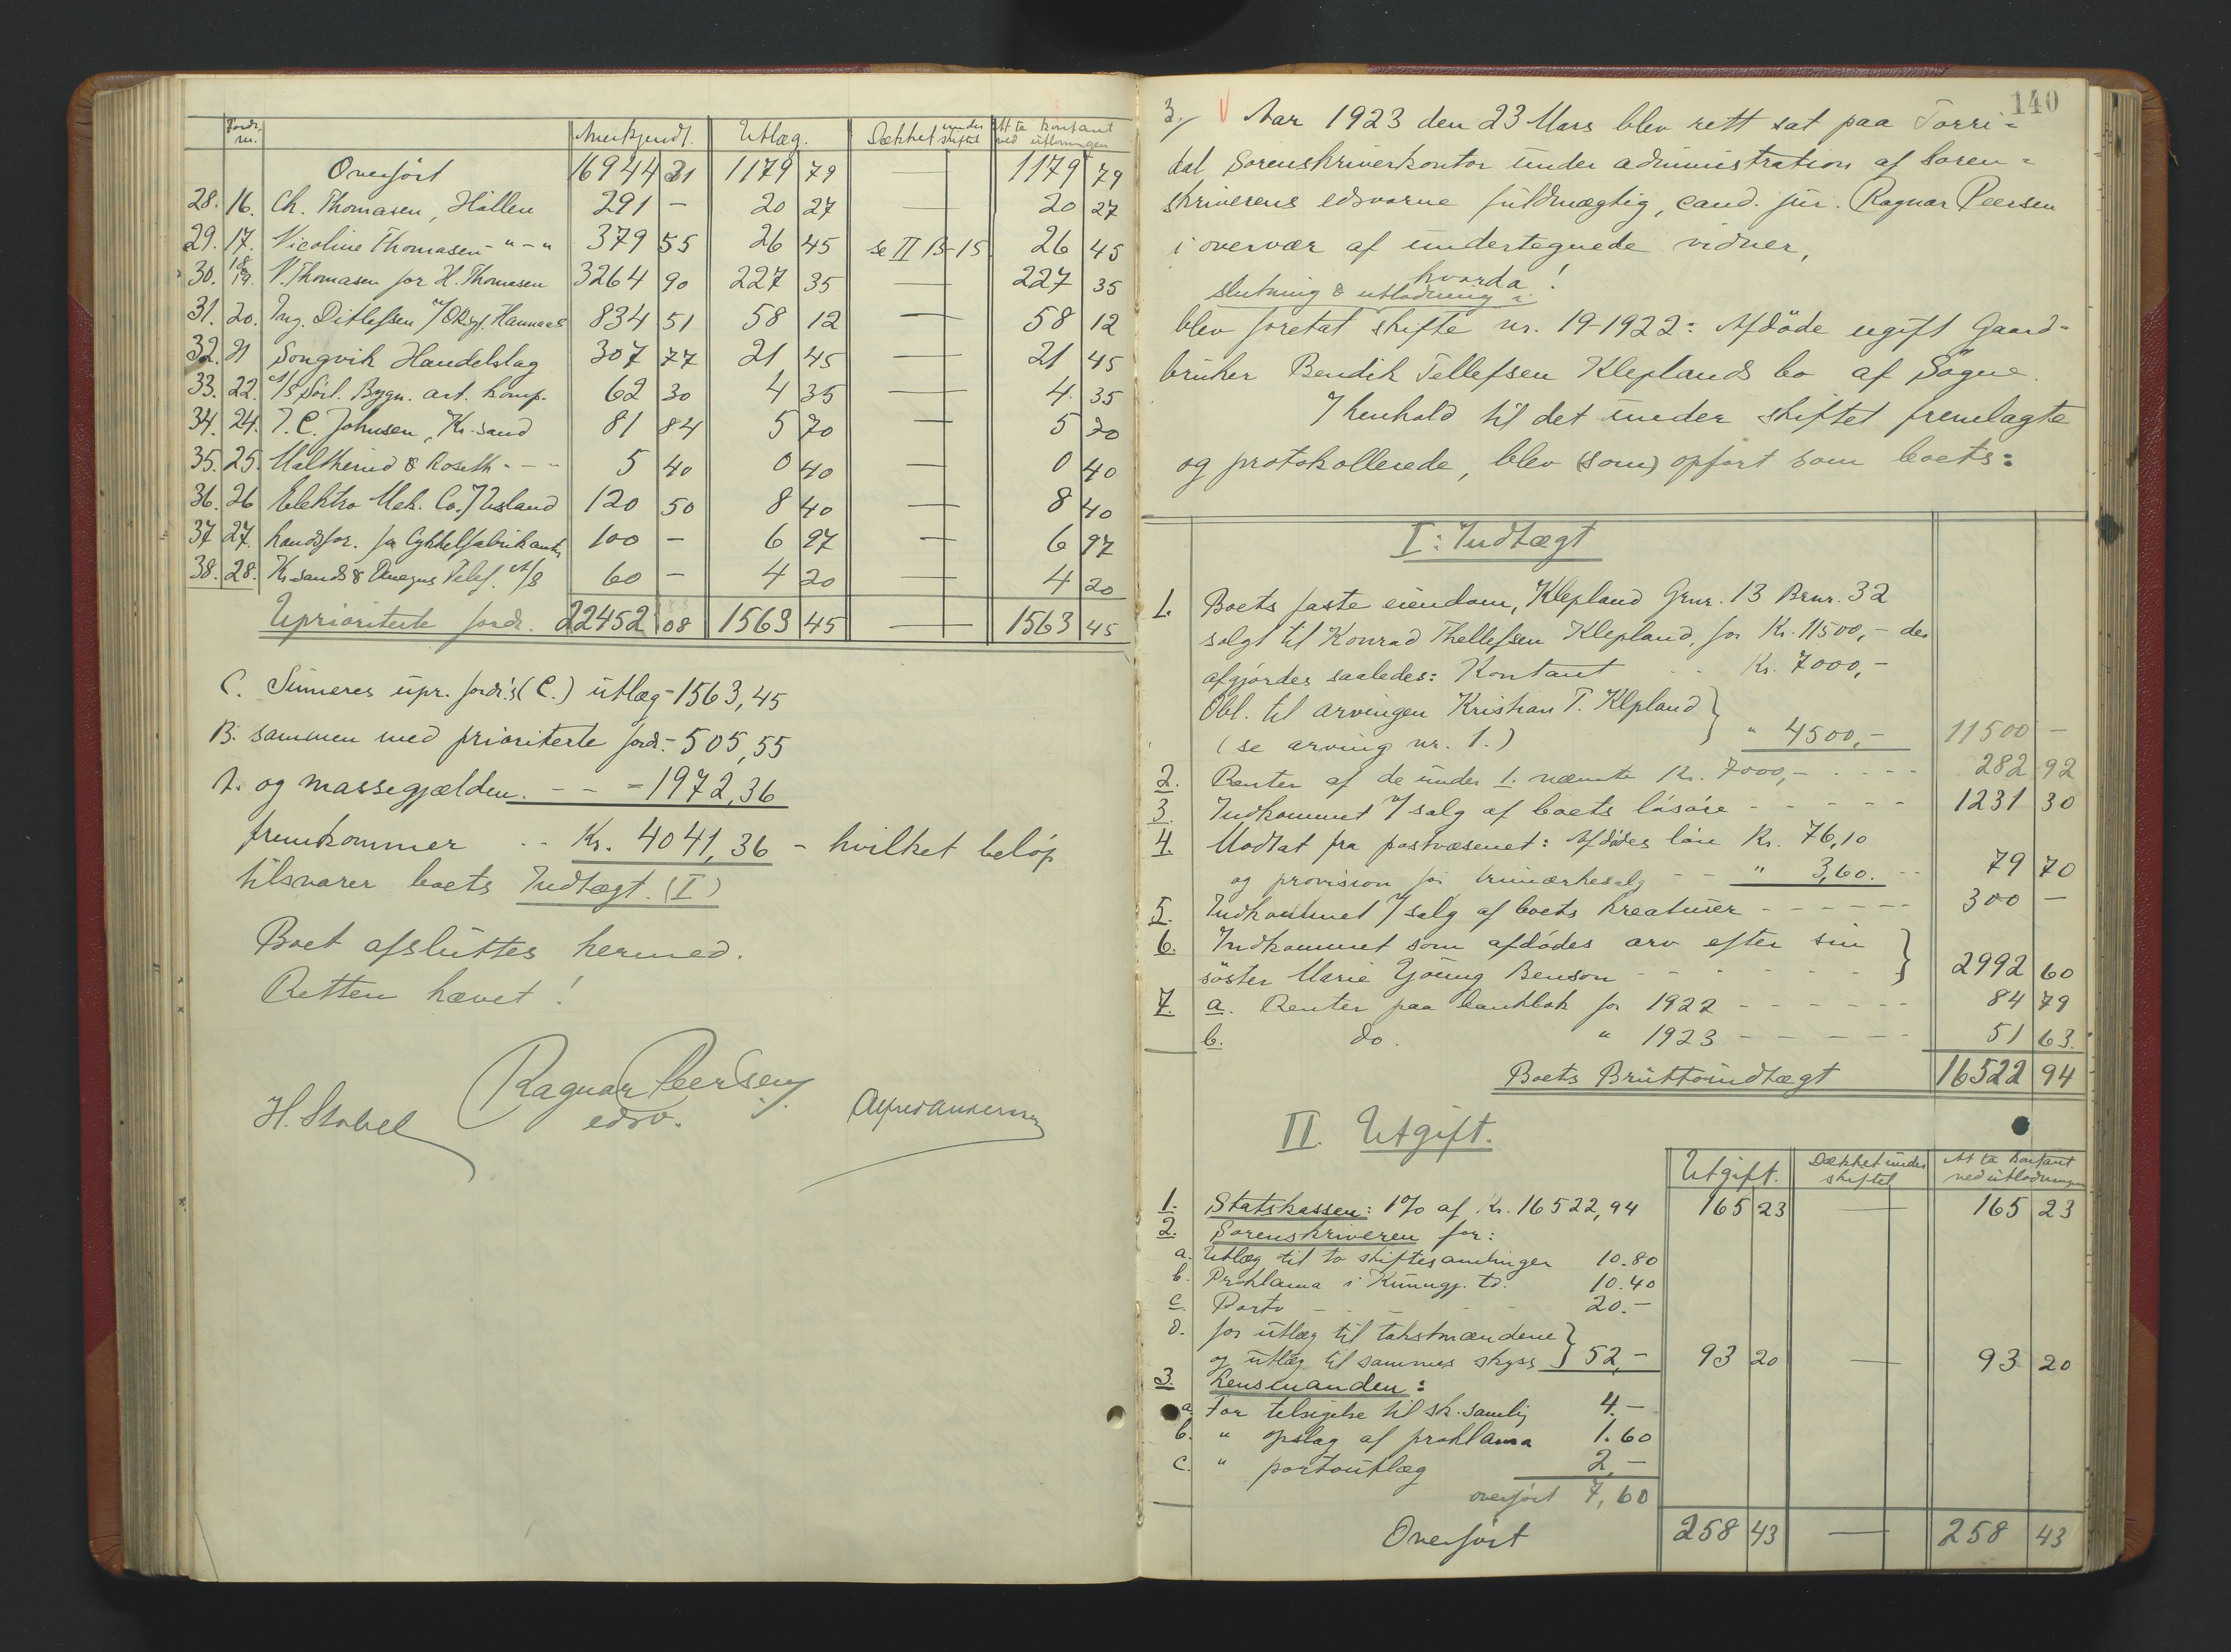 Fordr. nr. Anerkjendt. Utlæg. Dækket under skiftet At ta kontant ved utlodningen
Overført 16944 31 1179 79 — 1179 79
28. 16. Ch. Thomasen, Höllen 291 - 20 27 — 20 27
29. 17. Nicoline Thomasen - " - " 379 55 26 45 se II B-15 26 45
30. 18 & 19. V. Thomasen for H. Thomesen 3264 90 227 35 — 227 35
31. 20. Ing. Ditlefsen 834 51 58 12 — 58 12
32. 21 Songvik Handelslag 307 77 21 45 — 21 45
33. 22. A/S Sörl. Bygn. art. komp. 62 30 4 35 — 4 35
34. 24. J. C. Johnsen, Kr.sand 81 84 5 70 — 5 70
35. 25. & Roseth - — " 5 40 0 40 — 0 40
36. 26 Elektro Mek. Co. 120 50 8 40 — 8 40
37 27. Landsfor. for Cykkelfabrikanter 100 - 6 97 — 6 97
38. 28. Kr.sands & Omegns Telef. A/S 60 - 4 20 — 4 20
Uprioriterte fordr. 22452 08 1563 45 — 1563 45
C. Sumeres upr. fordr.'s (C.) utlæg - 1563,45
B. sammen med prioriterte fordr. - 505,55
A. og massegjælden. - - - 1972,36
fremkommer - - Kr. 4041,36 - hvilket beløp
tilsvarer boets Indtægt. (I)
Boet afsluttes hermed.
Retten hævet!
Ragnar Peersen
edsv.
H. Stabel
Alfred Andersen
140
3./ V Aar 1923 den 23 Mars blev rett sat paa Torri-
dal Sorenskriverkontor under administration af Soren-
skriverens edsvorne fuldmægtig, cand. jur. Ragnar Peersen
i overvær af undertegnede vidner,
hvorda!
slutning & utlodning i:
blev foretat skifte nr. 19-1922: Afdöde ugift Gaard-
bruker Bendik Tellefsen Kleplands bo af Sögne.
I henhold til det under skiftet fremlagte
og protokollerede, blev (som) opført som boets:
I: Indtægt
1. Boets faste eiendom, Klepland Gnr. 13 Bnr. 32
solgt til Konrad Thellefsen Klepland, for Kr. 11500,- der
afgjördes saaledes: Kontant - - Kr. 7000,-
Obl. til arvingen Kristian T. Klepland
(se arving nr. 1.) " 4500,- 11500 -
2. Renter af de under 1. nævnte Kr. 7000,- - - - - 282 92
3. Indkommet v/ salg af boets lösöre - - - - - 1231 30
4. Modtat fra postvæsenet: Afdödes lön Kr. 76,10
og provision for frimærkesalg - - " 3,60. - - 79 70
5. Indkommet v/ salg af boets kreaturer - - - - - - 300 -
6. Indkommet som afdödes arv efter sin
söster Marie Young Benson - - - - - - 2992 60
7. a. Renter paa bankbok for 1922 - - - - - - 84 79
b. do. " 1923 - - - - - 51 63.
Boets Bruttoindtægt 16522 94
II. Utgift.
Utgift. Dækket under skiftet At ta kontant ved utlodningen
1. Statskassen: 1% af Kr. 16522,94 165 23 — 165 23
2. Sorenskriveren for:
a. Utlæg til to skiftesamlinger 10.80
b. Proklama i Kunngj. td. 10.40
c. Porto - - - - 20.-
d. for utlæg til takstmændene
og utlæg til sammes skyss 52,- 93 20 — 93 20
3. Lensmanden:
a. For tilsigelse til sk. samlig 4.-
b. " opslag af proklama 1.60
c. " portoutlæg 2,-
overført 7,60
Overført 258 43 — 258 43